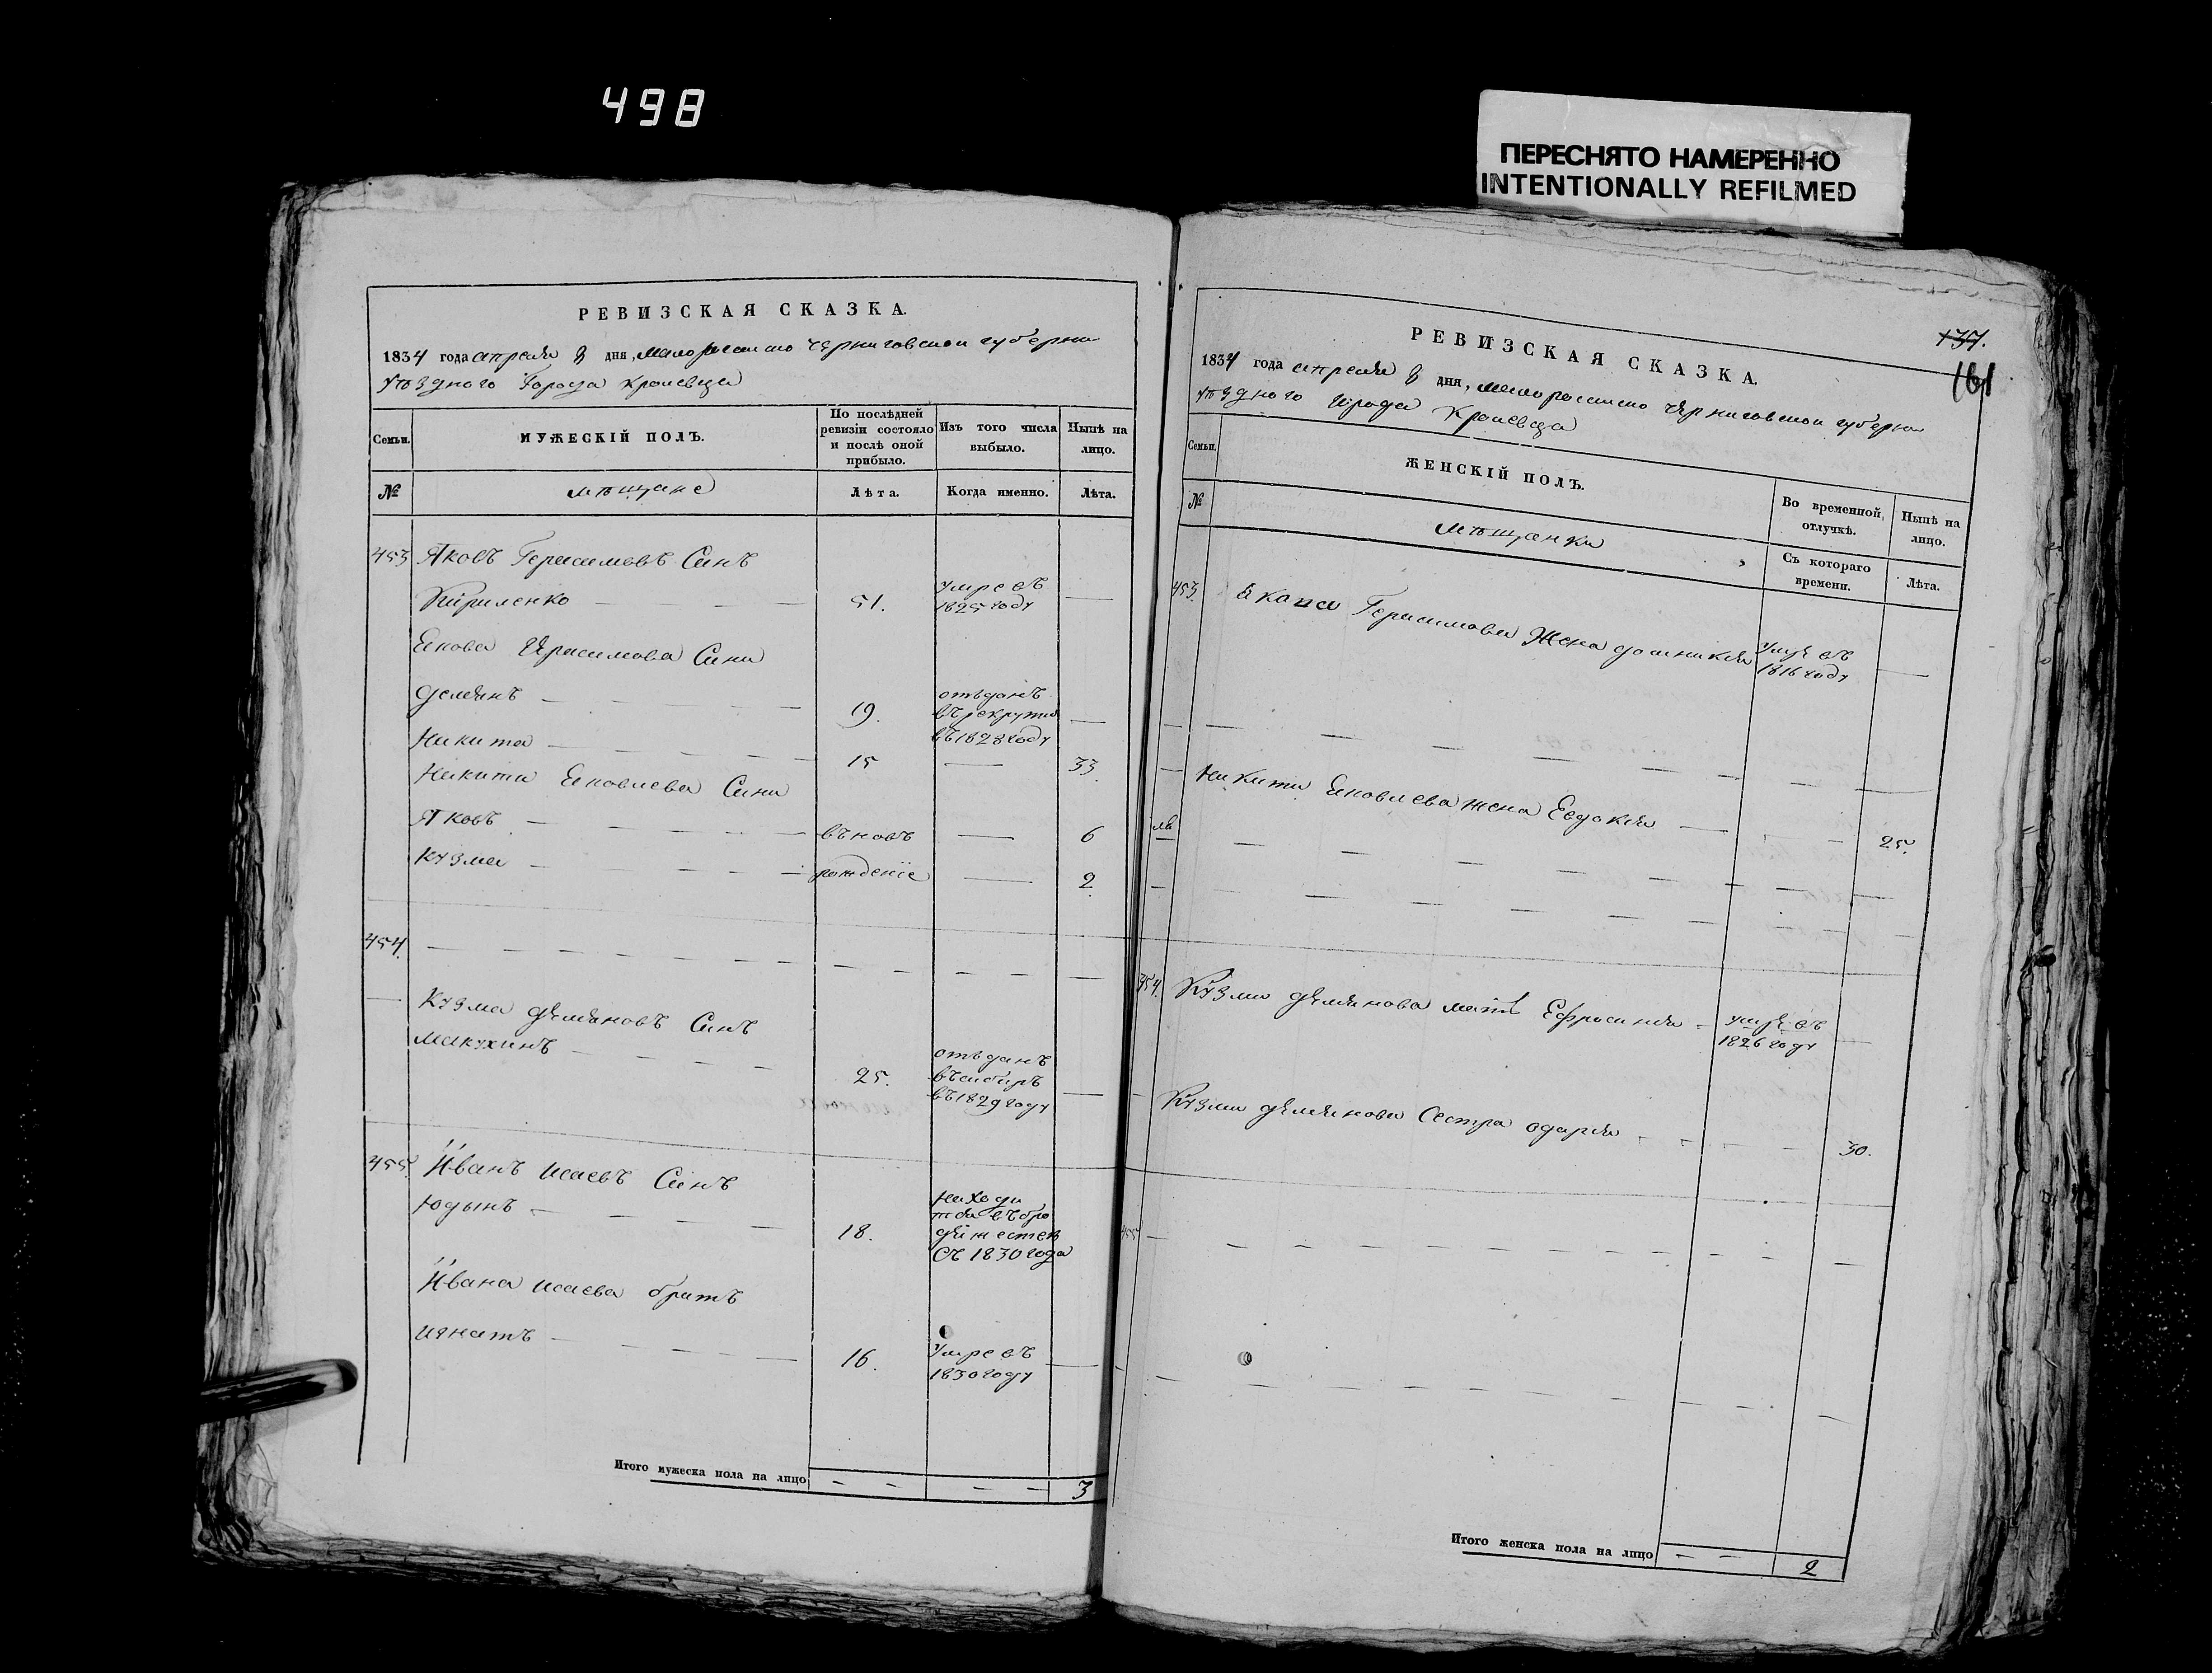 498
ПЕРЕСНЯТО НАМЕРЕННО
INTENTIONALLY REFILMED
РЕВИЗСКАЯ СКАЗКА.
1834 года апреля 8 дня, малоросийско черниговской губерни
уѣздного Города кролевца
Семьи.
МУЖЕСКІЙ ПОЛЪ.
По послѣдней ревизіи состояло и послѣ оной прибыло.
Изъ того числа выбыло.
Нынѣ на лицо.
№
мѣщане
Лѣта.
Когда именно.
Лѣта.
453 Яковъ Герасимовъ Синъ
Кириленко — — — 51. умре въ 1825 году —
Якова Герасимова Сини
демянъ — — — 19. отъданъ въ рекруты въ 1828 году —
Никита — — — 15 — 33.
Никити Яковлева Сини
Яковъ — — — въновъ — 6
Кузма — — — рожденіе — 2
454. — — — — — — —
— Кузма демяновъ Синъ
Макухинъ — — — 25. отъданъ въ сибиръ въ 1829 году —
455. Иванъ исаевъ Синъ
Юдынъ — — — 18. находи тся въ бро дяжестве съ 1830 года
Ивана исаева братъ
игнатъ — — — 16. Умре въ 1830 году —
Итого мужеска пола на лицо — — — — 3
137.
161
РЕВИЗСКАЯ СКАЗКА.
1834 года апреля 8 дня, малоросийско черниговской губерни
уѣздного города Кролевца
Семьи.
ЖЕНСКІЙ ПОЛЪ.
Во временной отлучкѣ.
Нынѣ на лицо.
№
мѣщанки
Съ котораго времени.
Лѣта.
453. Якова Герасимова Жена домникия умре въ 1816 году —
Никити Яковлева жена Евдокия — — 25.
454. Кузми демянова мать Ефросиния — умре въ 1826 году —
Кузми демянова Сестра одария — — — 30.
455 — — — — — — —
Итого женска пола на лицо — — 2